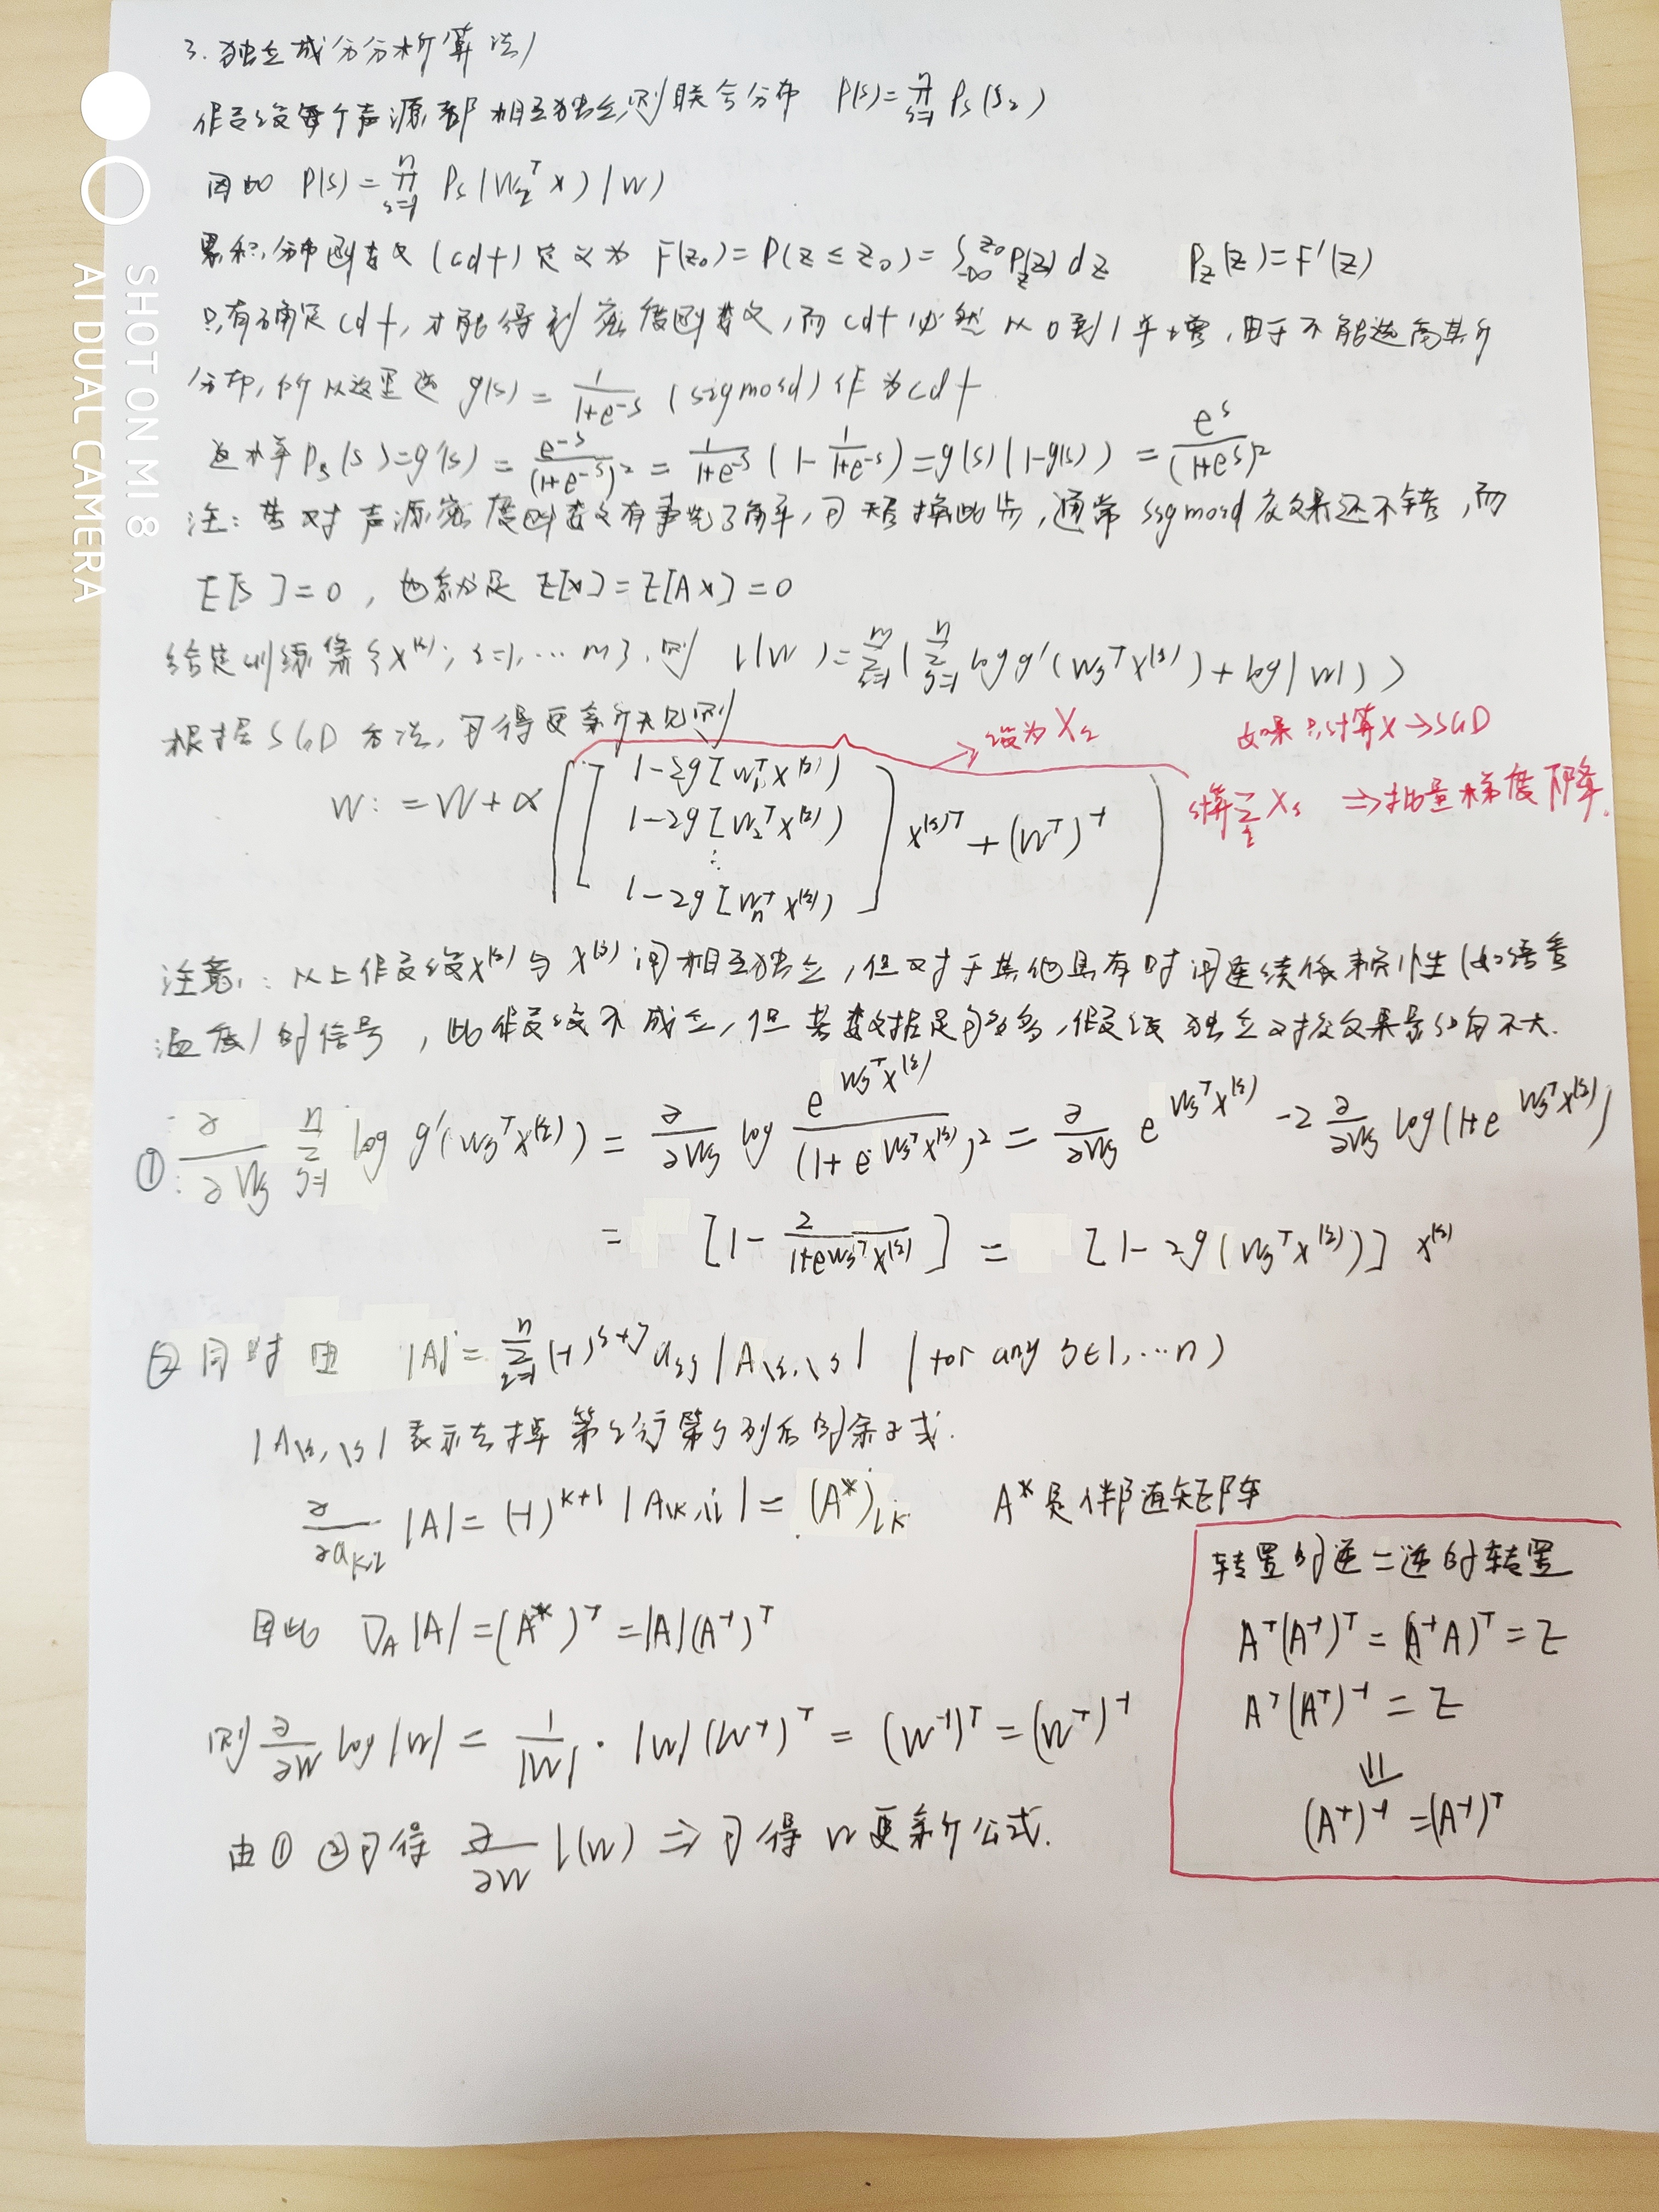 3. 独立成分分析算法
假设每个声源都相互独立,则联合分布 P(s)=∏_{i=1}^{n} P_s(s_i)
因此 P(s)=∏_{i=1}^{n} P_s(W_i^T x)|W|
累积分布函数(cdf)定义为 F(z_0)=P(z≤z_0)=∫_{-∞}^{z_0} P_z(z)dz P_z(z)=F'(z)
只有确定cdf,才能得到密度函数,而cdf必然从0到1单增,由于不能选高斯
分布,所以这里选 g(s)=1/(1+e^{-s}) (sigmoid)作为cdf
P_s(s)=g'(s)=e^{-s}/(1+e^{-s})^2=1/(1+e^{-s})(1-1/(1+e^{-s}))=g(s)(1-g(s))=e^s/(1+e^s)^2
注:若对声源密度函数有事先了解,可替换此步,通常sigmoid效果还不错,而
E[s]=0,也就是E[x]=E[Ax]=0
给定训练集{x^{(i)}; i=1,…m},则 l(W)=∑_{i=1}^{m}(∑_{j=1}^{n} log g'(W_j^T x^{(i)})+log|W|)
根据SGD方法,可得更新规则
设为X_i 如果只计算X→SGD
W:=W+α([1-2g[W_1^T x^{(i)}) 1-2g[W_2^T x^{(i)}) ⋮ 1-2g[W_n^T x^{(i)})] x^{(i)T}+(W^T)^{-1})
计算∑_i X_i ⇒批量梯度下降.
注意:以上假设x^{(i)}与x^{(j)}间相互独立,但对于其他具有时间连续依赖性(如语音
温度)的信号,此假设不成立,但若数据足够多,假设独立对应效果影响不大.
① ∂/∂W_j ∑_{j=1}^{n} log g'(W_j^T x^{(i)})=∂/∂W_j log e^{W_j^T x^{(i)}}/(1+e^{W_j^T x^{(i)}})^2=∂/∂W_j e^{W_j^T x^{(i)}}-2 ∂/∂W_j log(1+e^{W_j^T x^{(i)}})
=[1-2/(1+e^{W_j^T x^{(i)}})]=[1-2g(W_j^T x^{(i)})] x^{(i)}
②同时由 |A|=∑_{i=1}^{n}(-1)^{i+j} a_{ij}|A_{\i,\j}| (for any j∈1,…n)
|A_{\i,\j}|表示去掉第i行第j列后的余子式.
∂/∂a_{k,l} |A|=(-1)^{k+l}|A_{\k,\l}|=(A*)_{lk} A*是伴随矩阵
因此 ∇_A|A|=(A*)^T=|A|(A^{-1})^T
则 ∂/∂W log|W|=1/|W|·|W|(W^{-1})^T=(W^{-1})^T=(W^T)^{-1}
由①②可得 ∂/∂W l(W)⇒可得W更新公式.
转置的逆=逆的转置
A^T(A^{-1})^T=(A^{-1}A)^T=E
A^T(A^T)^{-1}=E
⇓
(A^T)^{-1}=(A^{-1})^T
SHOT ON MI 8
AI DUAL CAMERA